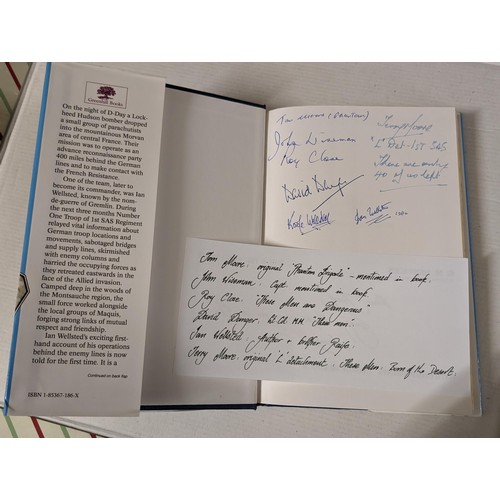 Greenhill Books
On the night of D-Day a Lock-
heed Hudson bomber dropped
a small group of parachutists
into the mountainous Morvan
area of central France. Their
mission was to operate as an
advance reconnaissance party
400 miles behind the German
lines and to make contact with
the French Resistance.
One of the team, later to
become its commander, was Ian
Wellsted, known by his nom-
de-guerre of Gremlin. During
the next three months Number
One Troop of 1st SAS Regiment
relayed vital information about
German troop locations and
movements, sabotaged bridges
and supply lines, skirmished
with enemy columns and
harried the occupying forces as
they retreated eastwards in the
face of the Allied invasion.
Camped deep in the woods of
the Montsauche region, the
small force worked alongside
the local groups of Maquis,
forging strong links of mutual
respect and friendship.
Ian Wellsted's exciting first-
hand account of his operations
behind the enemy lines is now
told for the first time. It is a
Continued on back flap
ISBN 1-85367-186-X
Tom Moore (Phantom)
John Wiseman
Roy Close
David Danger
Ian Wellsted
"L" Det - 1st SAS
There are only
40 of us left
Tom Moore: original "Phantom Brigade" - mentioned in book.
John Wiseman: Capt mentioned in book
Roy Close: "These Men are Dangerous"
David Danger: Lt Cl. MM "Their men".
Ian Wellsted: Author +
Terry Moore: original 'L' detachment. These Men: Born of the Desert.